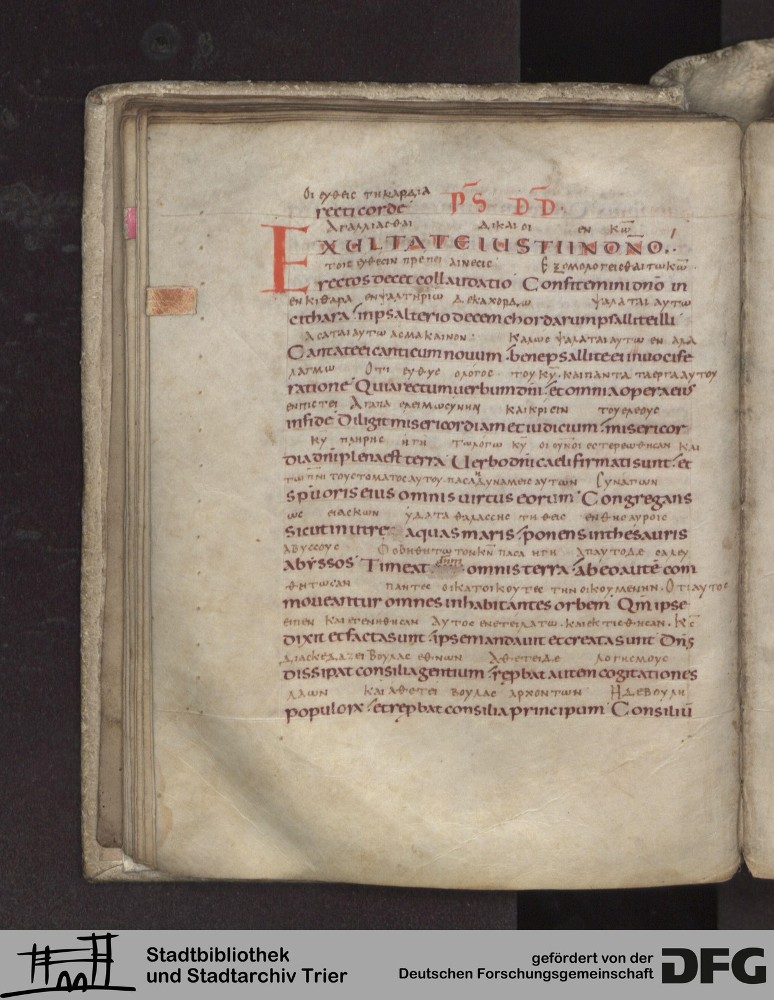 Οι ευθεις τη καρδια
recti corde PS DD
Αγαλλιασθαι δικαιοι εν κω
EXULTATE IUSTI IN DNO.
τοις ευθεσιν πρεπει αινεσις Εξομολογεισθαι τω κω
rectos decet collaudatio Confitemini dno in
εν κιθαρα εν ψαλτηριω δεκαχορδω ψαλαται αυτω
cithara in psalterio decem chordarum psallite illi
Ασαται αυτω ασμα καινον Καλως ψαλαται αυτω εν αλα
Cantate ei canticum novum bene psallite ei in vocife
λαγμω Οτι ευθυς ο λογος του κυ και παντα τα εργα αυτου
ratione Quia rectum verbum dni et omnia opera eius
εν πιστει Αγαπα ελεημωσυνην και κρισιν του ελεους
in fide Diligit misericordiam et iudicium misericor
κυ πληρης η γη τω λογω κυ οι ουνοι εστερεωθησαν και
dia dni plena est terra Verbo dni caeli firmati sunt et
τω πνι του στοματος αυτου πασα δυναμεις αυτων Συναγων
spu oris eius omnis virtus eorum Congregans
ως ασκων υδατα θαλασσης τηθεις εν θησαυροις
sicut in utre aquas maris ponens in thesauris
αβυσσους Φοβηθητω τον κν πασα η γη απ αυτο δε σαλευ
abyssos Timeat dnm omnis terra ab eo autē com
θητωσαν παντες οι κατοικουτες την οικουμενην. Οτι αυτος
moveantur omnes inhabitantes orbem Qm ipse
ειπεν και εγενηθησαν Αυτος ενετειλατω. και εκτισθησαν. Κς
dixit et facta sunt ipse mandavit et creata sunt Dns
διασκεδαζει βουλας εθνων αθετει δε λογισμους
dissipat consilia gentium repbat autem cogitationes
λαων και αθετει βουλας αρχοντων Η δε βουλη
populorx et repbat consilia principum Consiliū
Stadtbibliothek
und Stadtarchiv Trier
gefördert von der
Deutschen Forschungsgemeinschaft DFG